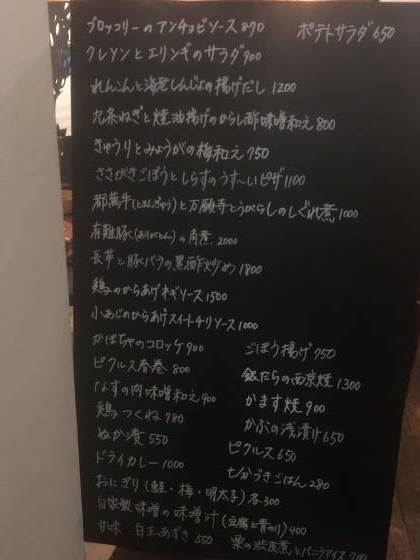 ブロッコリーのアンチョビソース870　ポテトサラダ650
クレソンとエリンギのサラダ900
れんこんと海老しんじょの揚げだし 1200
九条ねぎと焼油揚げのからし酢味噌和え 800
きゅうりとみょうがの梅和え 750
ささがきごぼうとしらすのうす〜いピザ1100
都萬牛(とまんぎゅう)と万願寺とうがらしのしぐれ煮1000
有難豚(ありがとん)の角煮 2000
長芋と豚バラの黒酢炒め1800
鶏のからあげネギソース1500
小あじのからあげスイートチリソース1000
かぼちゃのコロッケ900　ごぼう揚げ750
ピクルス春巻 800　銀だらの西京焼1300
なすの肉味噌和え900　かます焼900
鶏つくね780　かぶの浅漬け650
ぬか漬 550　ピクルス650
ドライカレー1000　土かづきごはん280
おにぎり(鮭・梅・明太子)各300
自家製味噌の味噌汁(豆腐と青のり)400
甘味 白玉あずき 550　栗の渋皮煮とバニラアイス700